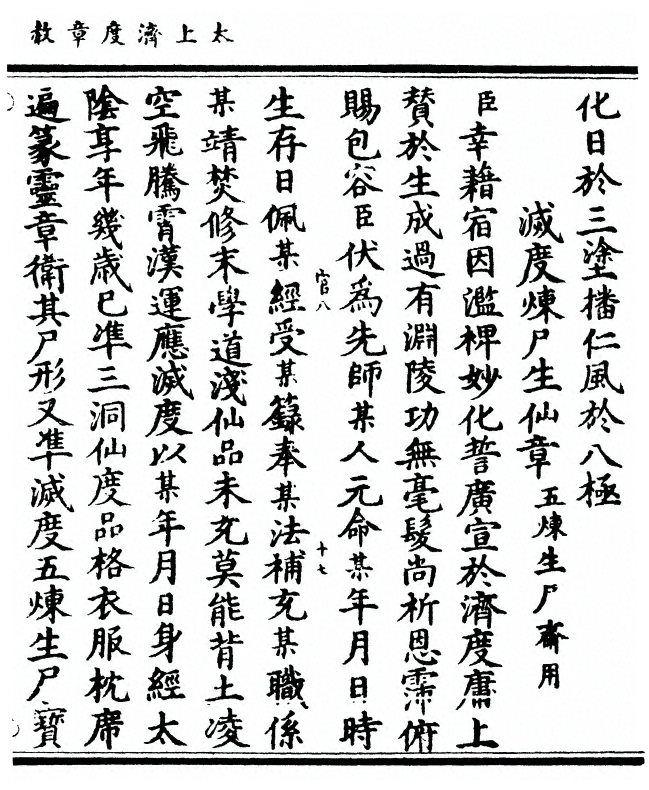 太上濟度章赦
化日於三塗播仁風於八極
滅度煉尸生仙章 五煉生尸齋用
臣幸藉宿因濫稗妙化誓廣宣於濟度庸上
賛於生成過有淵陵功無毫髮尚祈恩霈俯
賜包容臣伏爲先師某人元命某年月日時
官八 十七
生存日佩某經受某籙奉某法補充某職係
某靖焚修末學道淺仙品未充莫能背土凌
空飛騰霄漢運應滅度以某年月日身經太
陰享年幾歲已準三洞仙度品格衣服枕席
遍篆靈章衛其尸形又準滅度五煉生尸寶